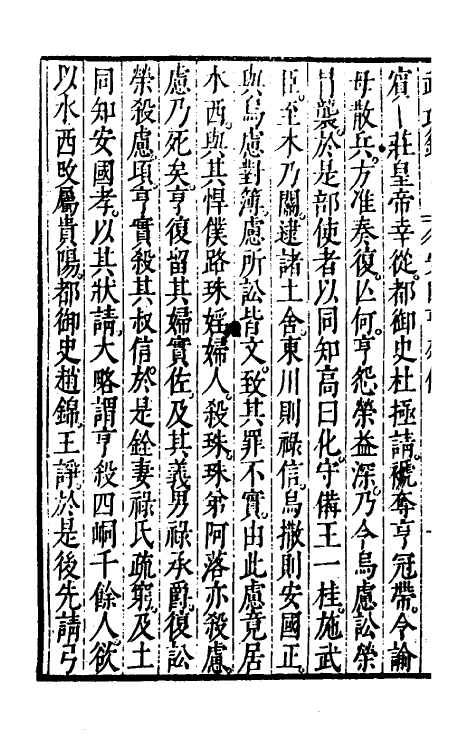 賓一莊皇帝幸從都御史杜極請褫奪亨冠帶令諭
毋散兵方准奏復亾何亨怨榮益深乃令烏慮訟榮
襲於是部使者以同知高曰化守備王一桂施武
臣至木乃關逮諸土舍東川則祿信烏撒則安國正
與烏慮對簿慮所訟皆文致其罪不實由此慮竟居
水西與其悍僕路珠婬婦人殺珠珠弟阿落亦殺慮
慮乃死矣亨復留其婦實佐及其義男祿承爵復訟
榮殺慮頃亨實殺其叔信於是銓妻祿氏疏窮及土
同知安國孝以其狀請大略謂亨殺四峒千餘人欲
以水西改屬貴陽都御史趙錦王諍於是後先請弓